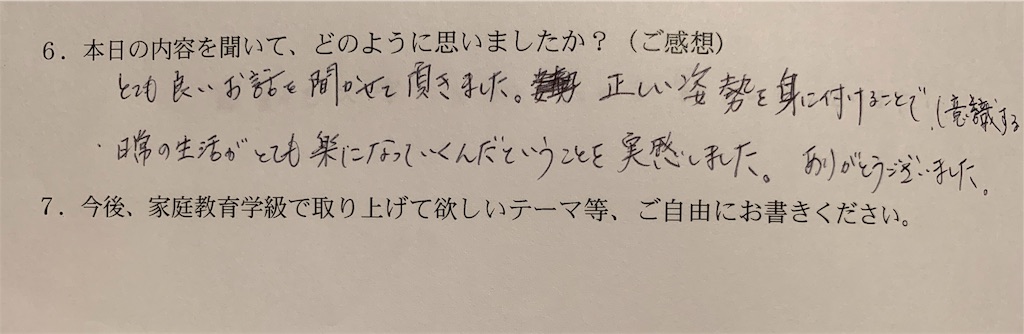 6．本日の内容を聞いて、どのように思いましたか？（ご感想）
とても良いお話を聞かせて頂きました。正しい姿勢を身に付けることで、(意識する
日常の生活がとても楽になっていくんだということを実感しました。ありがとうございました。
7．今後、家庭教育学級で取り上げて欲しいテーマ等、ご自由にお書きください。